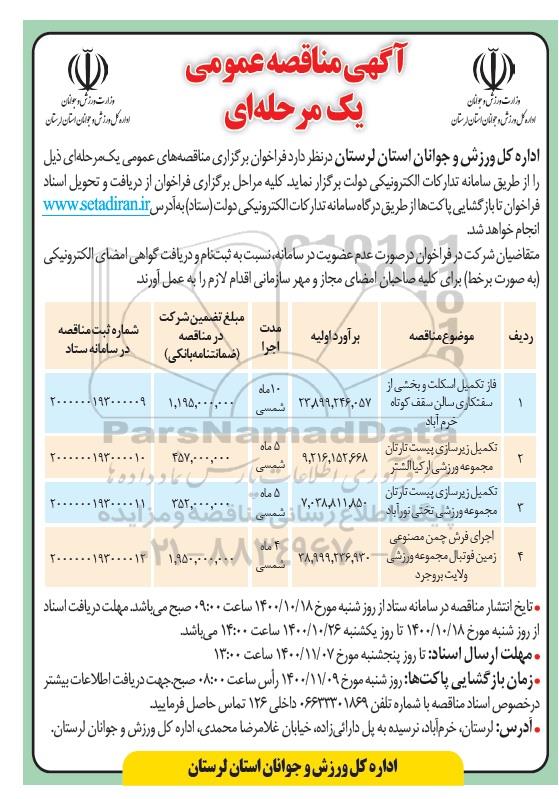 آگهی مناقصه عمومی
یک مرحله‌ای
وزارت ورزش و جوانان
اداره کل ورزش و جوانان استان لرستان
وزارت ورزش و جوانان
اداره کل ورزش و جوانان استان لرستان
اداره کل ورزش و جوانان استان لرستان درنظر دارد فراخوان برگزاری مناقصه‌های عمومی یک‌مرحله‌ای ذیل
را از طریق سامانه تدارکات الکترونیکی دولت برگزار نماید. کلیه مراحل برگزاری فراخوان از دریافت و تحویل اسناد
فراخوان تا بازگشایی پاکت‌ها از طریق درگاه سامانه تدارکات الکترونیکی دولت (ستاد) به آدرس www.setadiran.ir
انجام خواهد شد.
متقاضیان شرکت در فراخوان درصورت عدم عضویت در سامانه، نسبت به ثبت‌نام و دریافت گواهی امضای الکترونیکی
(به صورت برخط) برای کلیه صاحبان امضای مجاز و مهر سازمانی اقدام لازم را به عمل آورند.
ردیف موضوع مناقصه برآورد اولیه مدت اجرا مبلغ تضمین شرکت در مناقصه (ضمانتنامه بانکی) شماره ثبت مناقصه در سامانه ستاد
۱ فاز تکمیل اسکلت و بخشی از سفتکاری سالن سقف کوتاه خرم آباد ۲۳,۸۹۹,۲۴۶,۰۵۷ ۱۰ ماه شمسی ۱,۱۹۵,۰۰۰,۰۰۰ ۲۰۰۰۰۰۰۱۹۳۰۰۰۰۰۹
۲ تکمیل زیرسازی پیست تارتان مجموعه ورزشی ارکیا الشتر ۹,۲۱۶,۱۵۲,۶۶۸ ۵ ماه شمسی ۴۵۷,۰۰۰,۰۰۰ ۲۰۰۰۰۰۰۱۹۳۰۰۰۰۱۰
۳ تکمیل زیرسازی پیست تارتان مجموعه ورزشی تختی نورآباد ۷,۰۳۸,۸۱۱,۸۵۰ ۵ ماه شمسی ۳۵۲,۰۰۰,۰۰۰ ۲۰۰۰۰۰۰۱۹۳۰۰۰۰۱۱
۴ اجرای فرش چمن مصنوعی زمین فوتبال مجموعه ورزشی ولایت بروجرد ۳۸,۹۹۹,۲۳۶,۹۳۰ ۴ ماه شمسی ۱,۹۵۰,۰۰۰,۰۰۰ ۲۰۰۰۰۰۰۱۹۳۰۰۰۰۱۳
ParsNamadData
پایگاه اطلاع رسانی مناقصه و مزایده
۰۲۱-۸۸۳۴۹۶۷۰
• تایخ انتشار مناقصه در سامانه ستاد از روز شنبه مورخ ۱۴۰۰/۱۰/۱۸ ساعت ۰۹:۰۰ صبح می‌باشد. مهلت دریافت اسناد
از روز شنبه مورخ ۱۴۰۰/۱۰/۱۸ تا روز یکشنبه ۱۴۰۰/۱۰/۲۶ ساعت ۱۴:۰۰ می‌باشد.
• مهلت ارسال اسناد: تا روز پنجشنبه مورخ ۱۴۰۰/۱۱/۰۷ ساعت ۱۳:۰۰
• زمان بازگشایی پاکت‌ها: روز شنبه مورخ ۱۴۰۰/۱۱/۰۹ رأس ساعت ۰۸:۰۰ صبح.جهت دریافت اطلاعات بیشتر
درخصوص اسناد مناقصه با شماره تلفن ۰۶۶۳۳۳۰۱۸۶۹ داخلی ۱۲۶ تماس حاصل فرمایید.
• آدرس: لرستان، خرم‌آباد، نرسیده به پل دارائی‌زاده، خیابان غلامرضا محمدی، اداره کل ورزش و جوانان لرستان.
اداره کل ورزش و جوانان استان لرستان